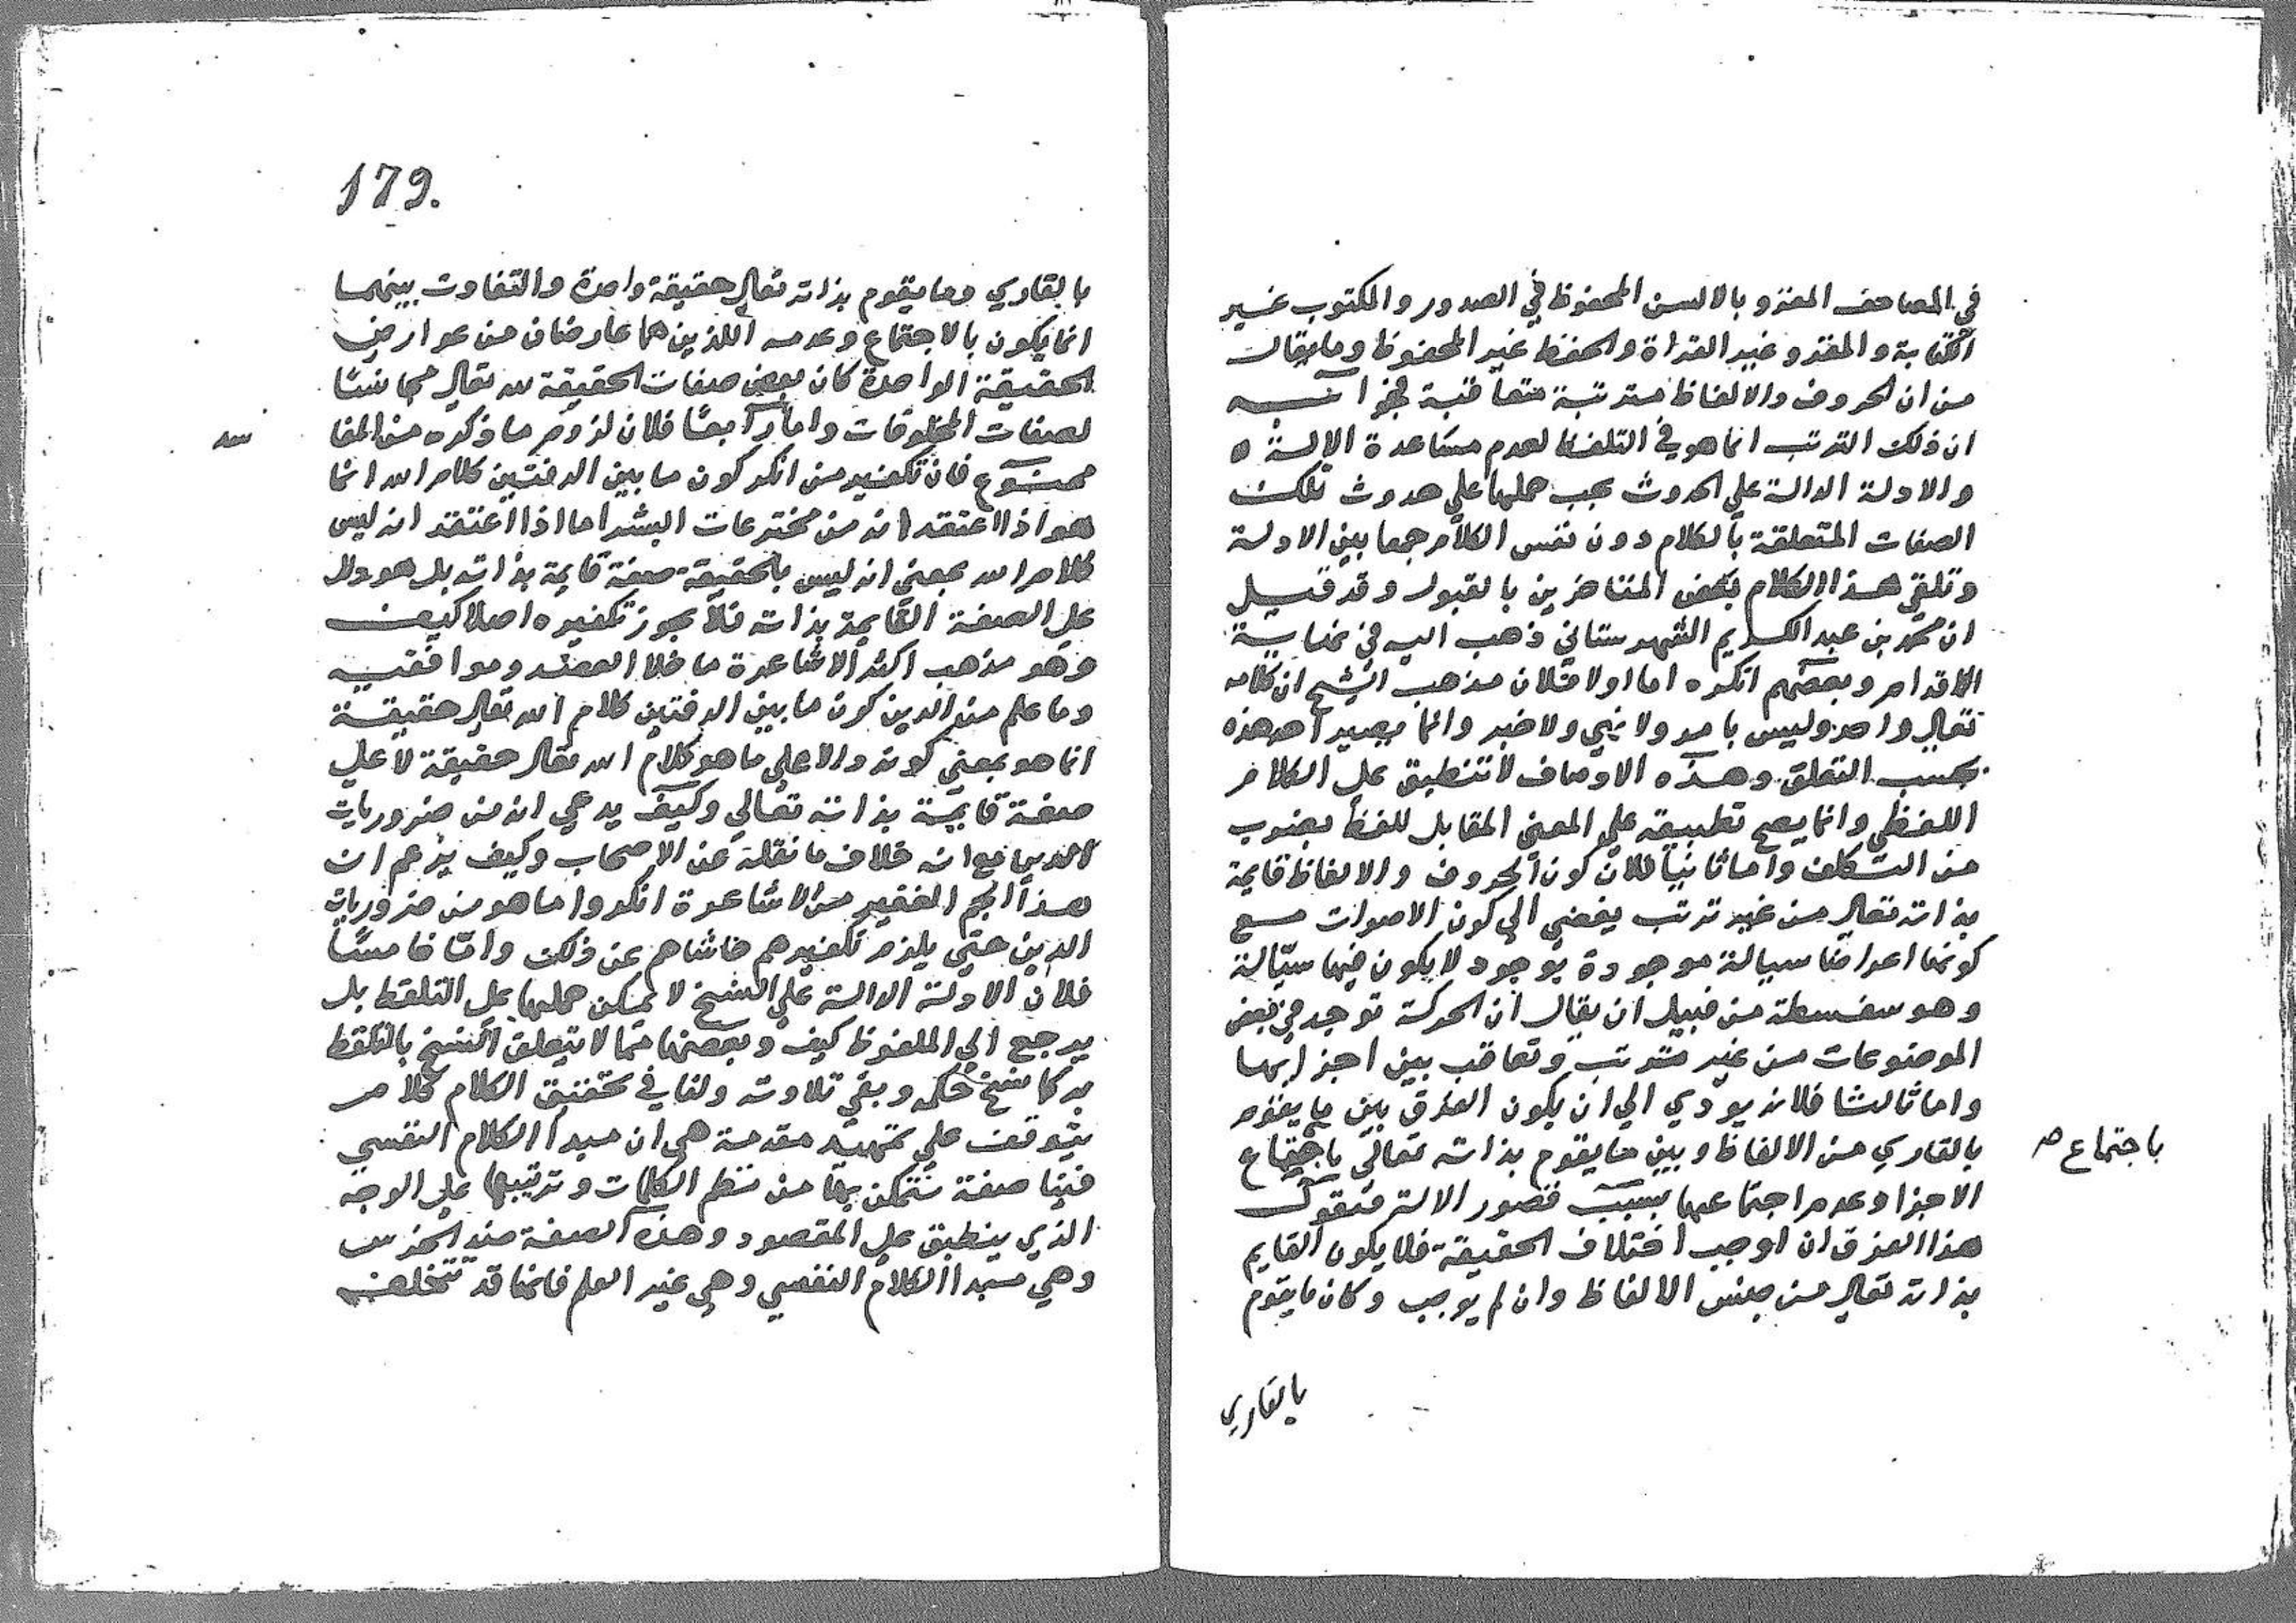 في المصاحف المقروبالالسن المحفوظ في الصدور والمكتوب غير
الكتابة والمقرو غير القراة والحفظ غير المحفوظ وما يقال
من ان الحروف والالفاظ مترتبة متعاقبة فجوابه
ان ذلك الترتب انما هو في التلفظ لعدم مساعدة الالة
والادلة الدالة علي الحدوث يجب حملها علي حدوث تلك
الصفات المتعلقة بالكلام دون نفس الكلام جمعا بين الادلة
وتلقي هذا الكلام بعض المتاخرين بالقبول وقد قيل
ان محمد بن عبد الكريم الشهرستاني ذهب اليه في نهاية
الاقدام وبعضهم انكره اما اولا فلان مذهب الشيخ ان كلامه
تعالي واحد وليس بامر ولا نهي ولا خبر وانما يصير احد هذه
بحسب التعلق وهذه الاوصاف لا تنطبق علي الكلام
اللفظي وانما يصح تطبيقه علي المعني المقابل للفظ بضرب
من التكلف واما ثانيا فلان كون الحروف والالفاظ قايمة
بذاته تعالي من غير ترتب يفضي الي كون الاصوات مع
كونها اعراضا سيالة موجودة بوجود لا يكون فيها سيّالة
وهو سفسطة من قبيل ان يقال ان الحركة توجد في بعض
الموضوعات من غير ترتب وتعاقب بين اجزايها
واما ثالثا فلانه يودي الي ان يكون الفرق بين ما يقوم
بالقاري من الالفاظ وبين ما يقوم بذاته تعالي باجتماع
باجتماع صـ
الاجزا وعدم اجتماعها بسبب قصور الالة فنقول
هذا الفرق ان اوجب اختلاف الحقيقة فلا يكون القايم
بذاته تعالي من جنس الالفاظ وان لم يوجب وكان ما يقوم
بالقاري
179.
بالقاري وما يقوم بذاته تعالي حقيقة واحدة والتفاوت بينهما
انما يكون بالاجتماع وعدمه اللذين هما عارضان من عوارض
الحقيقة الواحدة كان بعض صفات الحقيقة له تعالي مجانسًا
لصفات المخلوقات واما رابعًا فلان لزوم ما ذكره من المفا
سد
ممنوع فان تكفير من انكر كون ما بين الدفتين كلام الله انما
هو اذا اعتقد انه من مخترعات البشر اما اذا اعتقد انه ليس
كلام الله بمعني انه ليس بالحقيقة صفة قايمة بذاته بل هو دال
علي الصفة القايمة بذاته فلا يجوز تكفيره اصلا كيف
وهو مذهب اكثر الاشاعرة ما خلا العضد وموافقيه
وما علم من الدين كون ما بين الدفتين كلام الله تعالي حقيقة
انما هو بمعني كونه دالا علي ما هو كلام الله تعالي حقيقة لا علي
صفة قايمة بذاته تعالي وكيف يدعي انه من ضروريات
الدين مع انه خلاف ما نقلة عن الاصحاب وكيف يزعم ان
هذا الجم الغفير من الاشاعرة انكروا ما هو من ضروريات
الدين حتي يلزم تكفيرهم حاشاهم عن ذلك وامّا خامسًا
فلان الادلة الدالة علي النسخ لا يمكن حملها علي التلفظ بل
يرجع الي الملفوظ كيف وبعضها مما لا يتعلق النسخ بالتلفظ
به كما نسخ حكمه وبقي تلاوته ولنا في تحقيق الكلام كلام
يتوقف علي تمهيد مقدمة هي ان مبدا الكلام النفسي
فينا صفة نتمكن بها من نظم الكلمات وترتيبها علي الوجه
الذي ينطبق علي المقصود وهذه الصفة ضد الخرس
وهي مبدا الكلام النفسي وهي غير العلم فانها قد تتخلف